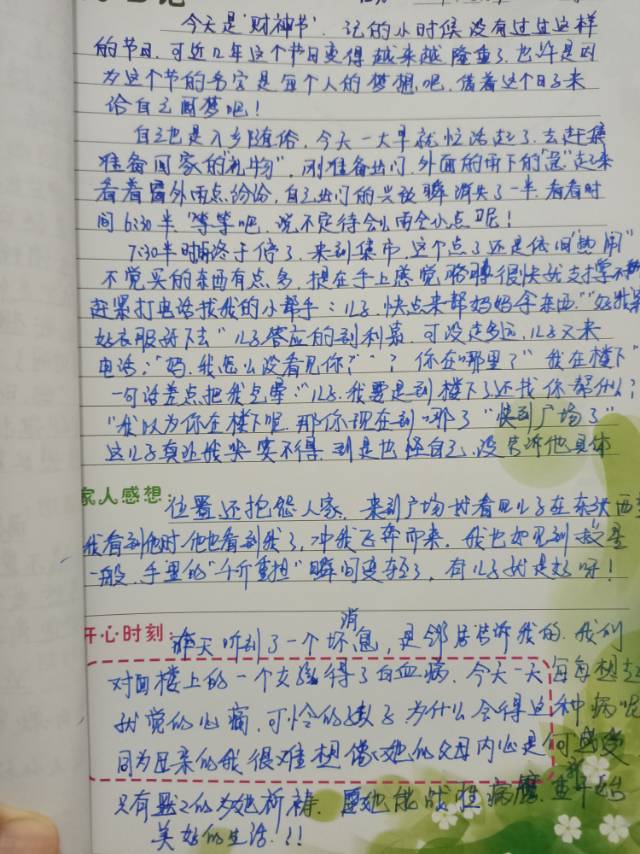 今天是"财神节"，记的小时候没有过过这样
的节日，可近几年这个节日变得越来越隆重了，也许是因
为这个节的名字是每个人的梦想吧，借着这个日子来
给自己圆梦吧！
自己也是入乡随俗，今天一大早就忙活起了，去赶集
准备回家的"礼物"，刚准备出门，外面的雨下的"急"起来
看着窗外雨点纷纷，自己出门的兴致瞬消失了一半，看看时
间6:30半，"等等吧，说不定待会儿雨会小点呢！
7:30半时雨终于停了，来到集市，这个点了还是依旧"热闹"
不觉买的东西有点多，提在手上感觉胳膊很快就支撑不
赶紧打电话找我的小帮手：儿子，快点来帮妈妈拿东西，"好我穿
好衣服就下去"儿子答应的到利索，可没走多远，儿子又来
电话："妈，我怎么没看见你？"？你在"哪里了"我在楼下"
一句话差点把我气晕："儿子，我要是到楼下了还找你帮什么！
"我以为你在楼下呢，那你现在到"哪了"快到广场了"
这儿子真让我哭笑不得，到是也怪自己，没告诉他具体
家人感想：位置还抱怨人家，来到广场就看见儿子在东张西
我看到他时，他也看到我了，冲我飞奔而来，我也如见到救星
一般，手里的"千斤重担"瞬间变轻了，有儿子就是好呀！
开心时刻：昨天听到了一个坏消息，是邻居告诉我的，我们
对面楼上的一个女孩得了白血病，今天一天每每想起
就觉的心痛，可怜的孩子为什么会得这种病呢
同为母亲的我很难想像她的父母内心是何
只有默默的为她祈祷，愿她能战胜病魔，重新开始
美好的生活！！